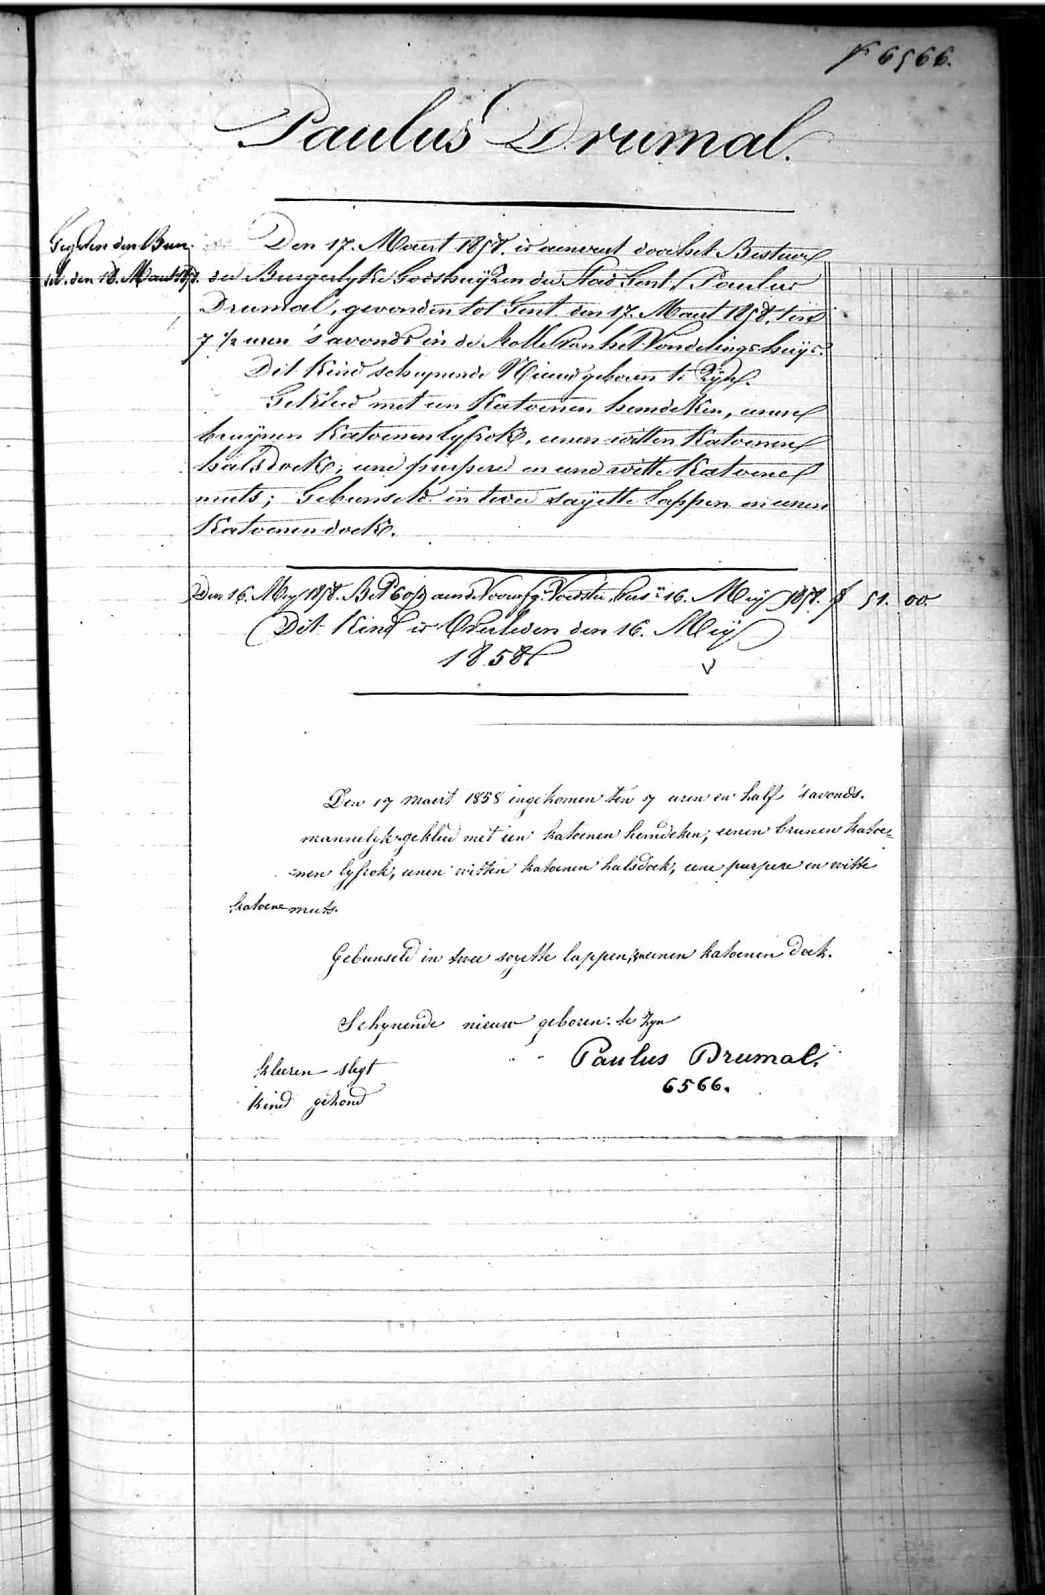 № 6566.
Paulus Drumal.
den 18. Maert 1858.
Den 17. Maert 1858. is aenveert door het Bestuur
der Burgerlyke Godshuijzen der Stad Gent, Paulus
Drumal, gevonden tot Gent den 17. Maert 1858. ten
7 1/2 uren 's avonds in de Rolle van het Vondelingshuijs.
Dit Kind schynende Nieuw geboren te Zyn.
Gekleed met een Katoenen hemdeken, eenen
bruijnen Katoenen lyfrok, eenen witten Katoenen
halsdoek, eene purpere en eene witte Katoene
muts; Gebunseld in twee sayette lappen en eenen
Katoenen doek.
Den 16. Mey 1858. Voedster 16. Meij 1858. f 51. 00.
Dit Kind is Overleden den 16. Meij
1858
Den 17 maert 1858 ingekomen ten 7 uren en half 's avonds.
mannelyk gekleed met een katoenen hemdeken, eenen brunen katoe-
-nen lyfrok, eenen witten katoenen halsdoek, eene purpere en witte
katoene muts.
Gebunseld in twee sayette lappen, en eenen katoenen doek.
Schynende nieuw geboren te Zyn
Paulus Drumal.
6566.
kleeren slegt
kind gezond